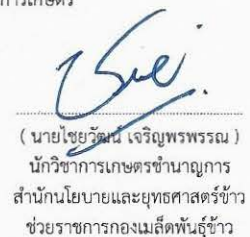 การเกษตร
( นายไชยวัฒน์ เจริญพรพรรณ )
นักวิชาการเกษตรชำนาญการ
สำนักนโยบายและยุทธศาสตร์ข้าว
ช่วยราชการกองเมล็ดพันธุ์ข้าว